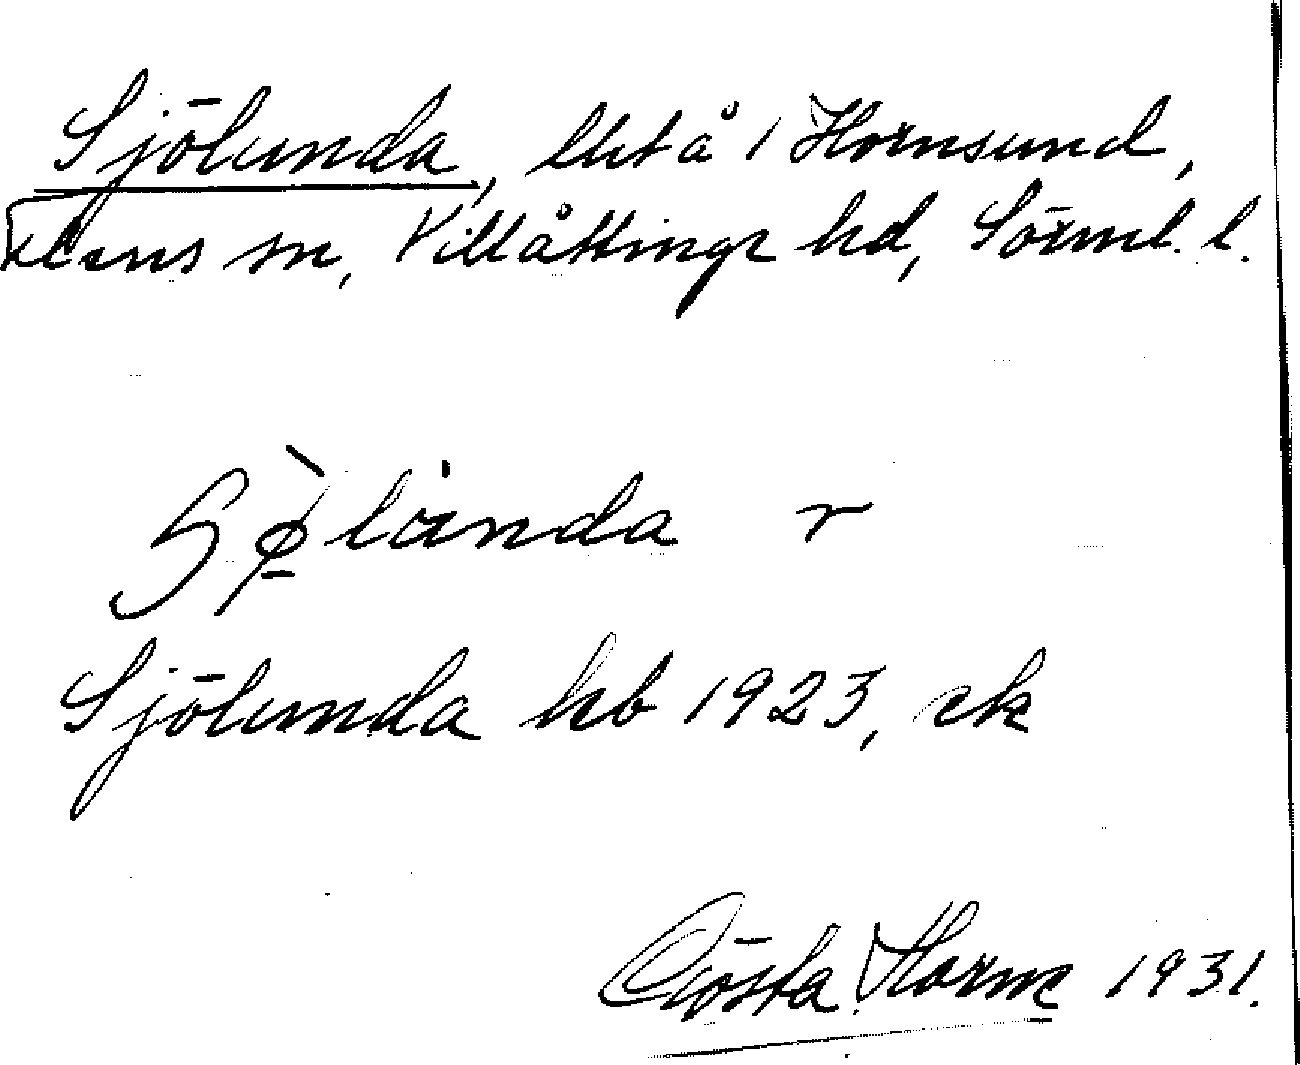 Sjölunda, lht å 1 Hornsund,
Flens sn, Villåttinge hd, Sörml. l.
Sø̀lúnda r
Sjölunda hb 1923, ek
Gösta Horm 1931.